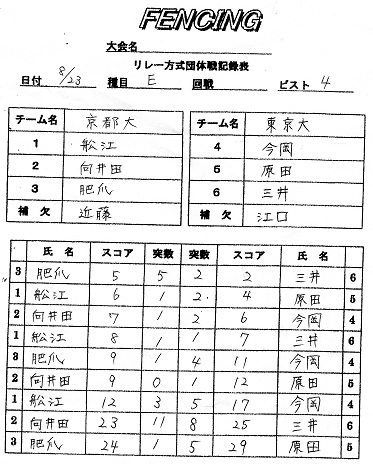 FENCING
大会名
リレー方式団体戦記録表
日付 8/23 種目 E 回戦 ピスト 4
チーム名 京都大 チーム名 東京大
1 舩江 4 今岡
2 向井田 5 原田
3 肥爪 6 三井
補欠 近藤 補欠 江口
氏名 スコア 突数 突数 スコア 氏名
3 肥爪 5 5 2 2 三井 6
1 舩江 6 1 2 4 原田 5
2 向井田 7 1 2 6 今岡 4
1 舩江 8 1 1 7 三井 6
3 肥爪 9 1 4 11 今岡 4
2 向井田 9 0 1 12 原田 5
1 舩江 12 3 5 17 今岡 4
2 向井田 23 11 8 25 三井 6
3 肥爪 24 1 5 29 原田 5